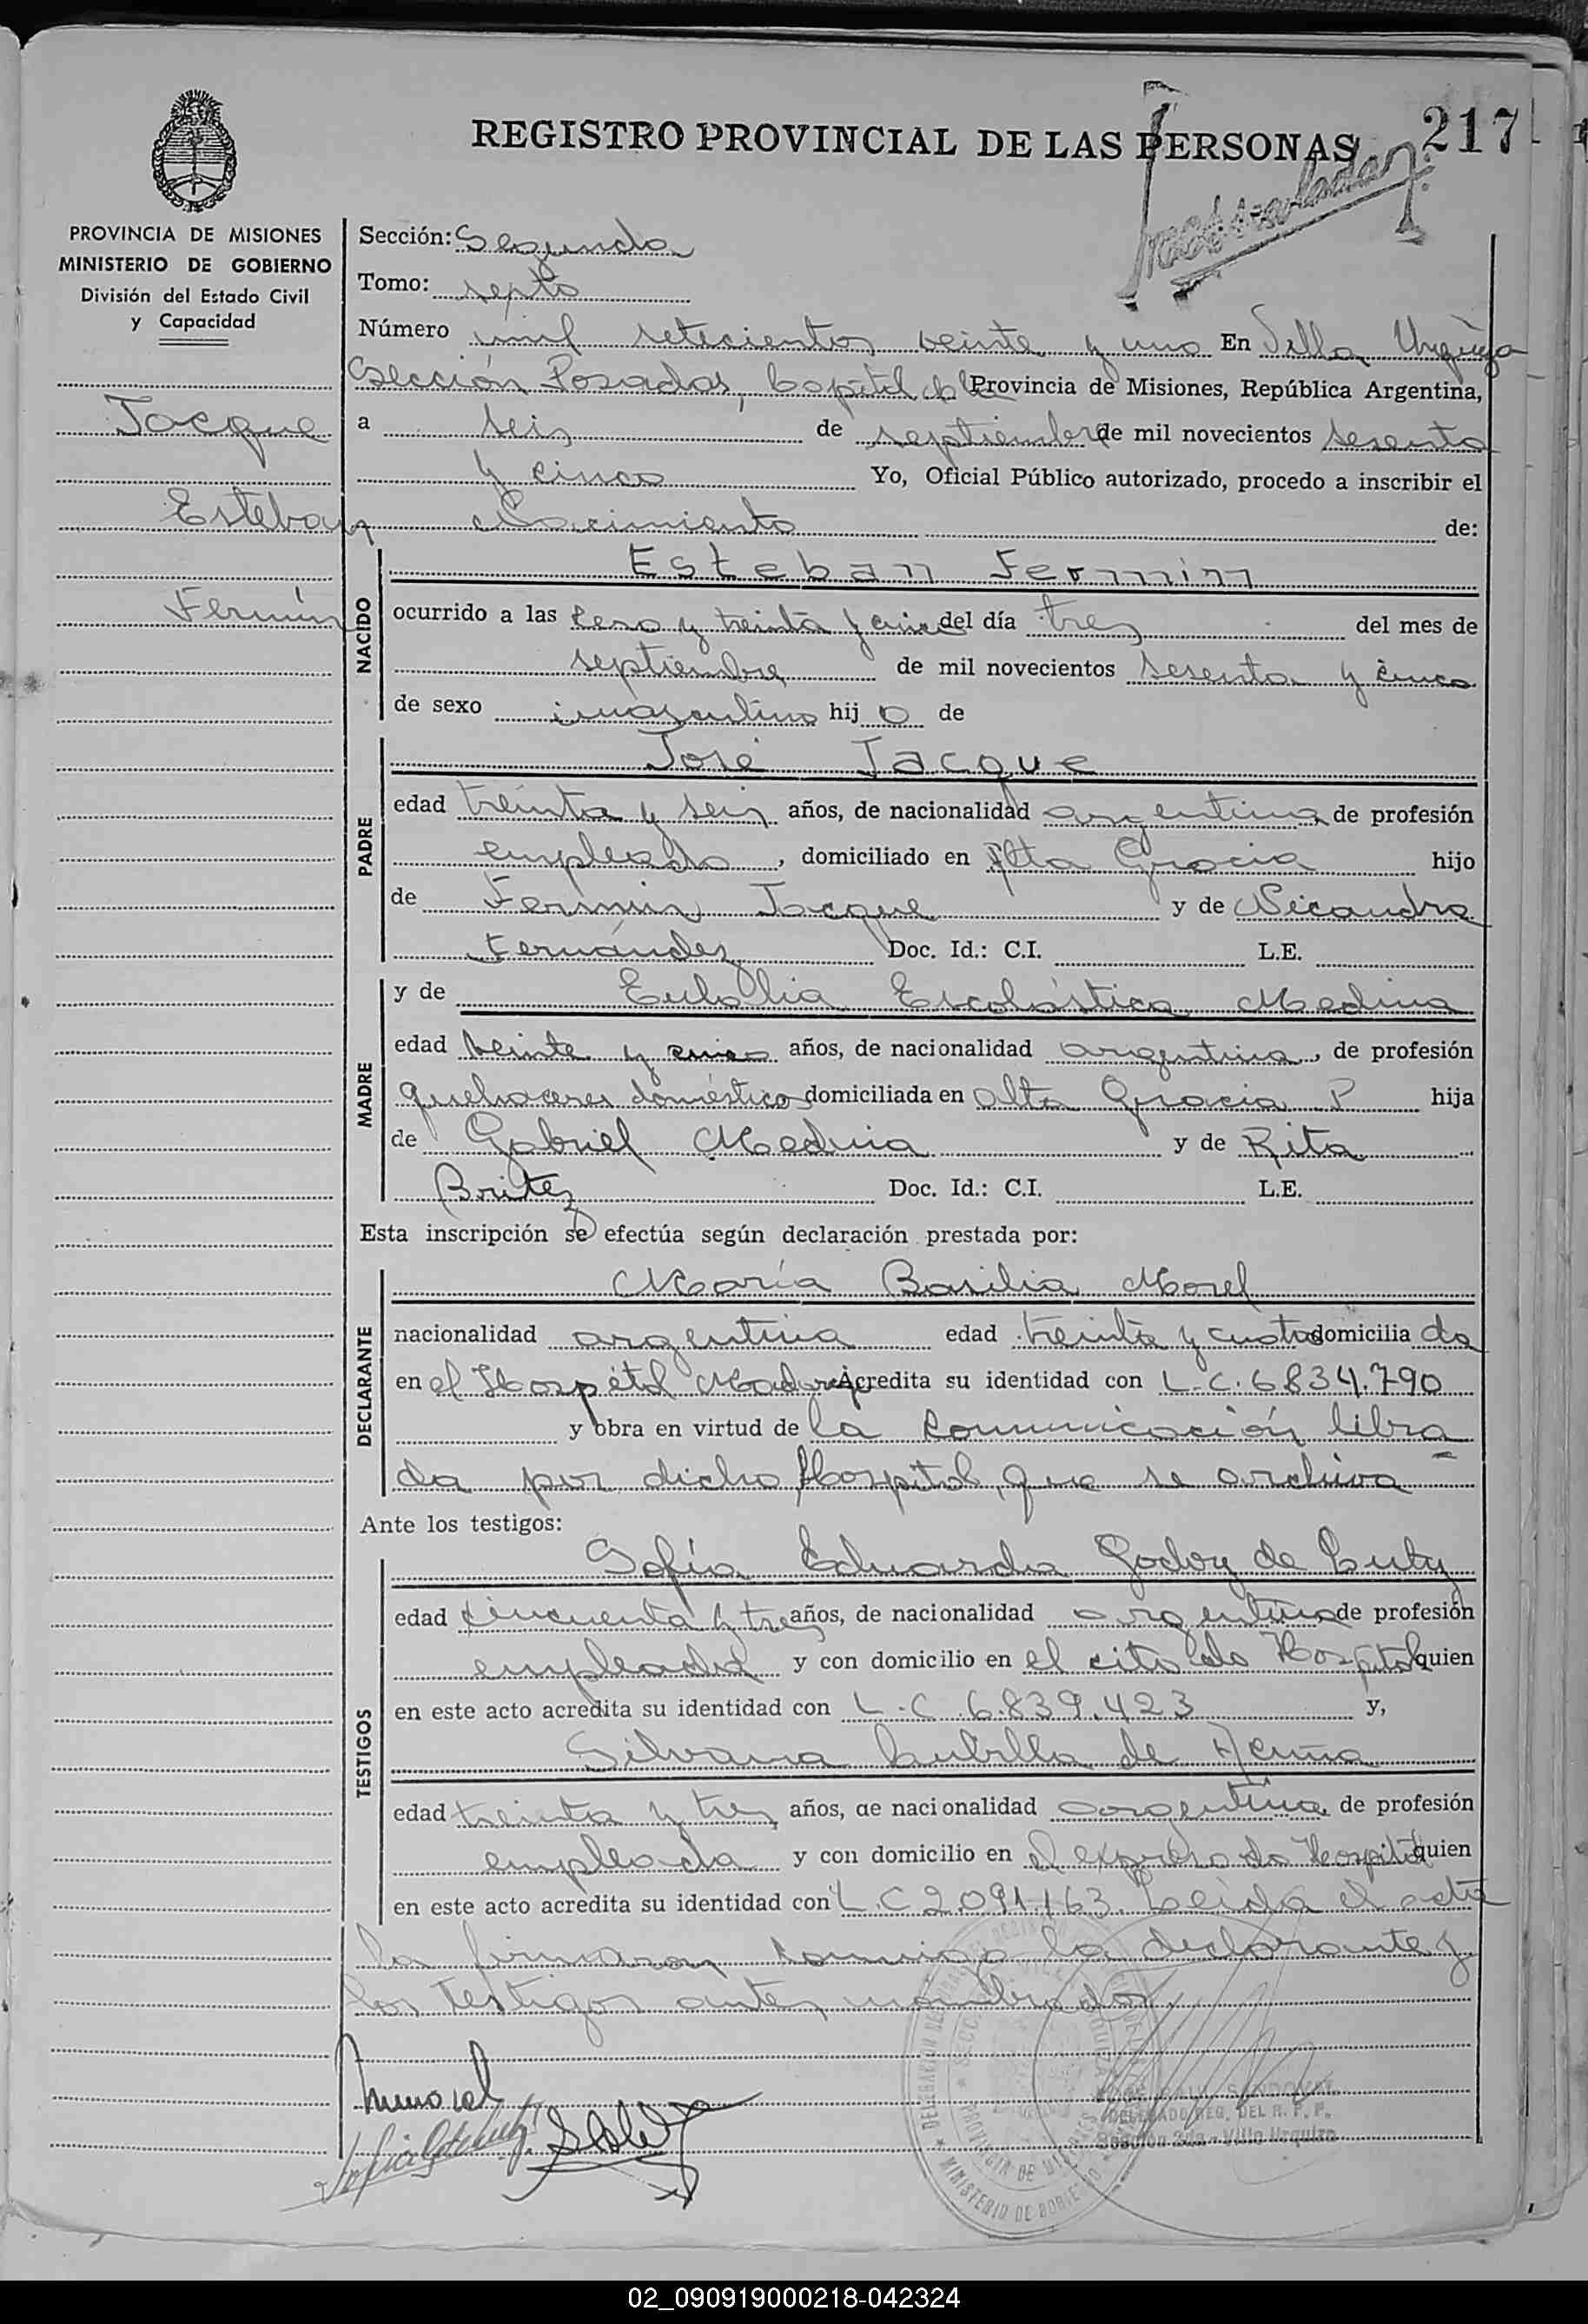 REGISTRO PROVINCIAL DE LAS PERSONAS
217
PROVINCIA DE MISIONES
MINISTERIO DE GOBIERNO
División del Estado Civil
y Capacidad
Jacque
Esteban
Fermín
Sección: Segunda
Tomo: septo
Número mil setecientos veinte y uno En Villa Urquiza
Sección Posadas, Capital de la Provincia de Misiones, República Argentina,
a seis de septiembre de mil novecientos sesenta
y cinco Yo, Oficial Público autorizado, procedo a inscribir el
Nacimiento de:
NACIDO
Esteban Fermin
ocurrido a las cero y treinta y cinco del día tres del mes de
septiembre de mil novecientos sesenta y cinco
de sexo masculino hijo de
PADRE
José Jacque
edad treinta y seis años, de nacionalidad argentina, de profesión
empleado, domiciliado en Alta Gracia hijo
de Fermín Jacque y de Nicandra
Fernández Doc. Id.: C.I. L.E.
MADRE
y de Eulalia Escolástica Medina
edad veinte y cinco años, de nacionalidad argentina, de profesión
quehaceres doméstico domiciliada en Alta Gracia P hija
de Gabriel Medina y de Rita
Britez Doc. Id.: C.I. L.E.
Esta inscripción se efectúa según declaración prestada por:
DECLARANTE
María Basilia Morel
nacionalidad argentina edad treinta y cuatro domiciliada
en el Hospital Madariaga Acredita su identidad con L.C. 6834.790
y obra en virtud de la comunicación libra
da por dicho Hospital, que se archiva
Ante los testigos:
TESTIGOS
Sofía Eduarda Godoy de
edad cincuenta y tres años, de nacionalidad argentina de profesión
empleada y con domicilio en el citado Hospital quien
en este acto acredita su identidad con L.C. 6.839.423 y,
Silvana de
edad treinta y tres años, de nacionalidad argentina, de profesión
empleada y con domicilio en el expresado Hospital quien
en este acto acredita su identidad con L.C 2.091.163. Leída el acta
la firmaron conmigo la declarante y
los testigos antes nombrados.
DELEGADO REG. DEL R. P. P.
Sección 2da - Villa Urquiza
02_090919000218-042324